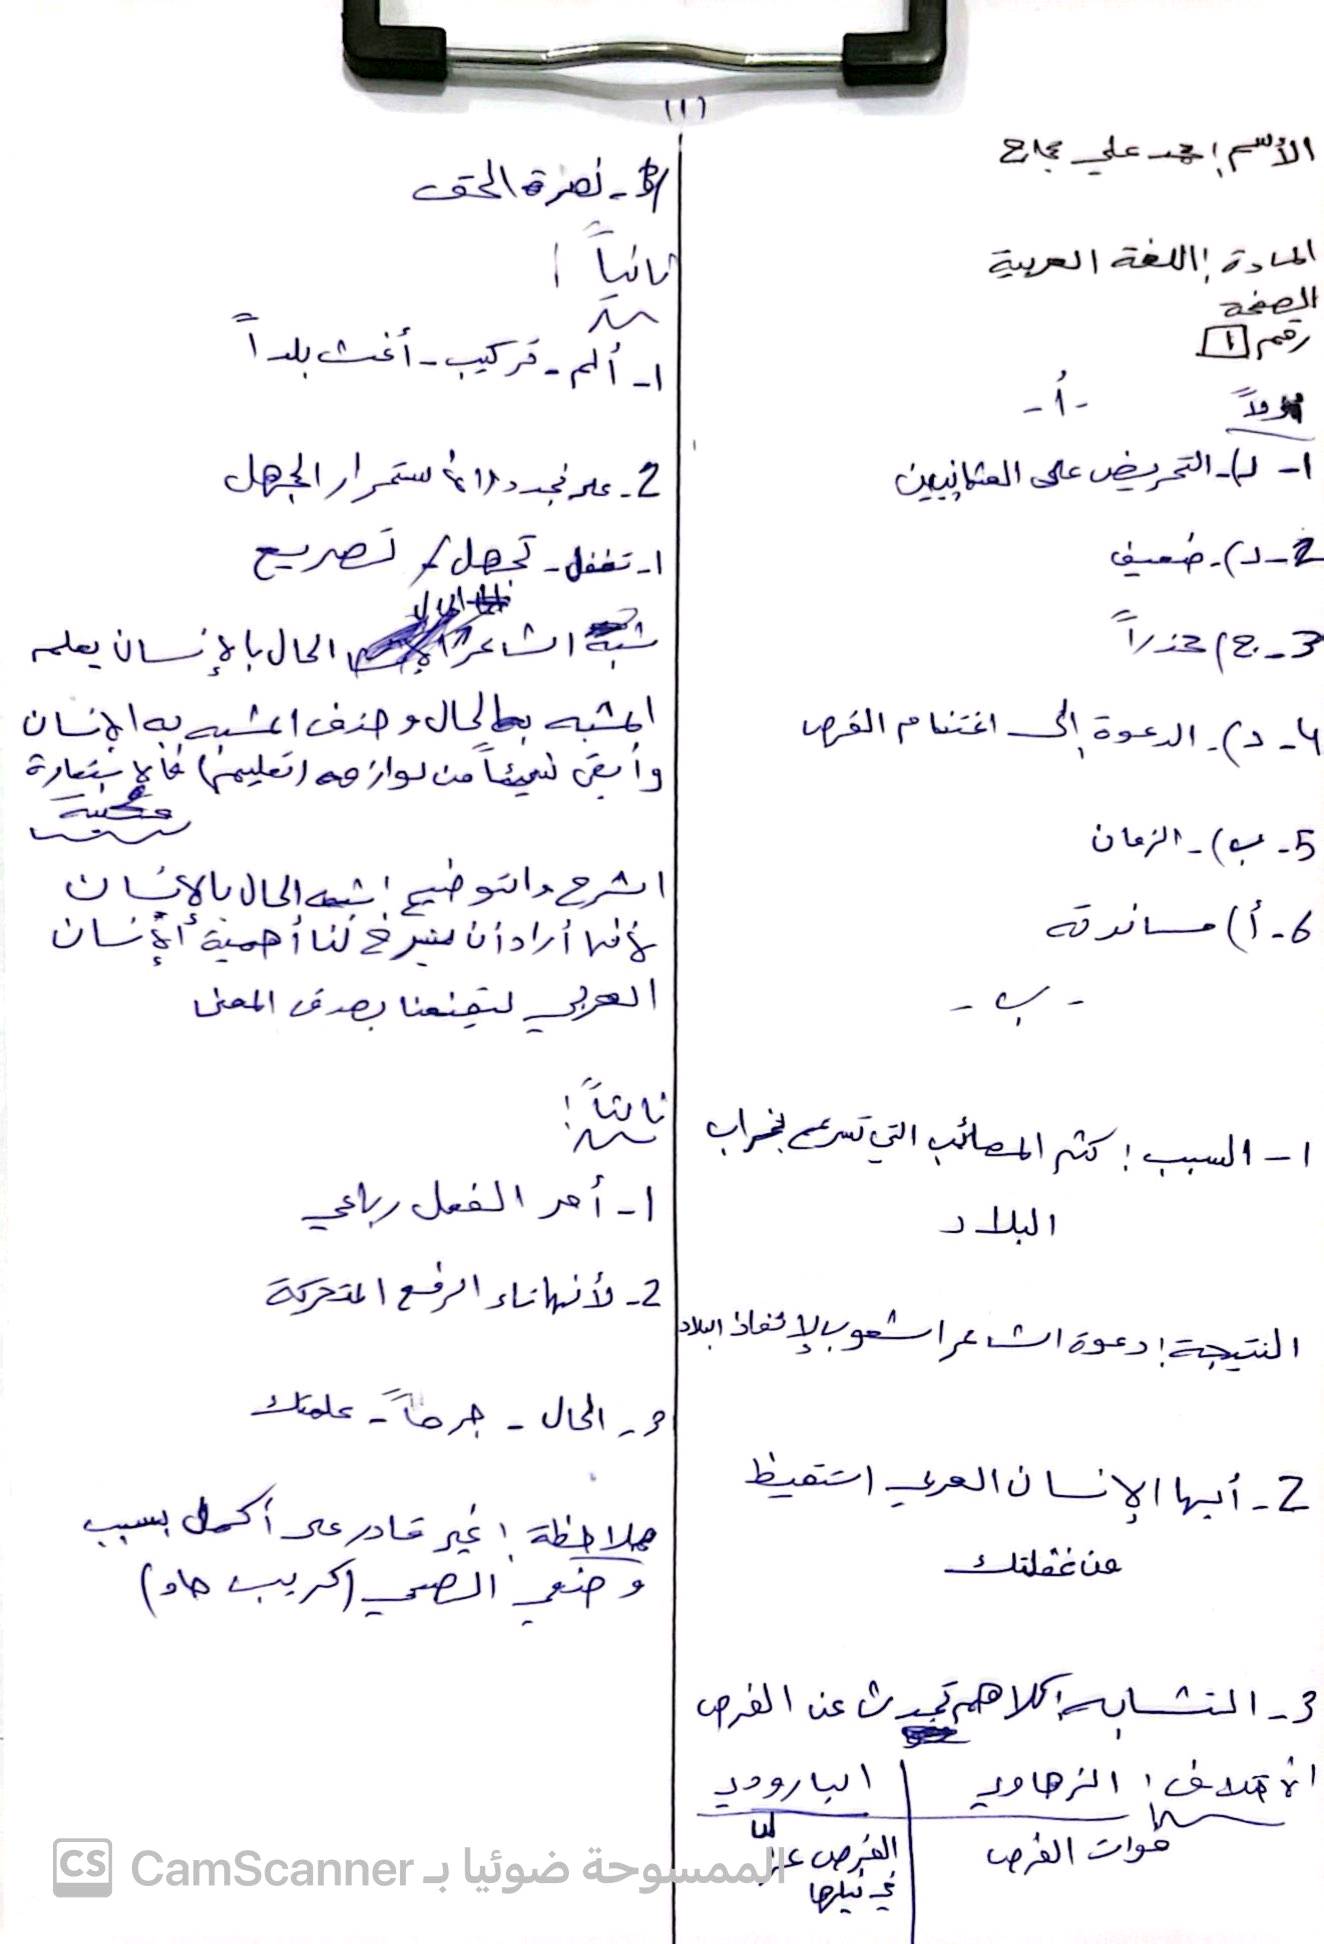 (١)
الأسم: محمد علي
المادة: اللغة العربية
الصفحة
رقم ١
أولاً
- أ -
١- د)- التحريض على العثمانيين
2- د)- ضعيف
3- ج) حذراً
4- د)- الدعوة إلى اغتنام الفرص
5- ب)- الزمان
6- أ) مساندته
- ب -
١- السبب: كثر المصائب التي تسرع بخراب
البلاد
النتيجة: دعوة الشاعر الشعوب لإنقاذ البلاد
2- أيها الإنسان العربي استقيظ
عن غفلتك
3- التشابه: كلاهم تحدث عن الفرص
الأختلاف: الزهاوي
البارودي
فوات الفرص
الفرص
في نيلها
- نصرة الحق
ثانياً:
١- ألم - تركيب - أغث بلداً
2- على استمرار الجهل
١- تغفل - تجهل / تصريع
شبه الشاعر الحال بالإنسان يعلم
المشبه الحال وحذف المشبه به الإنسان
وأبقى شيئاً من لوازمه (تعليم) فالاستعارة
مكنية
الشرح والتوضيح: شبه الحال بالانسان
لأنها أراد أن يشرح لنا أهمية الإنسان
العربي ليقنعنا بصدق المعنى
ثالثاً:
١- أمر الفعل رباعي
2- لأنها تاء الرفع المتحركة
3- الحال - جرماً - علمتك
ملاحظة: غير قادر على أكمل بسبب
وضعي الصحي (كريب حاد)
CS الممسوحة ضوئيا بـ CamScanner